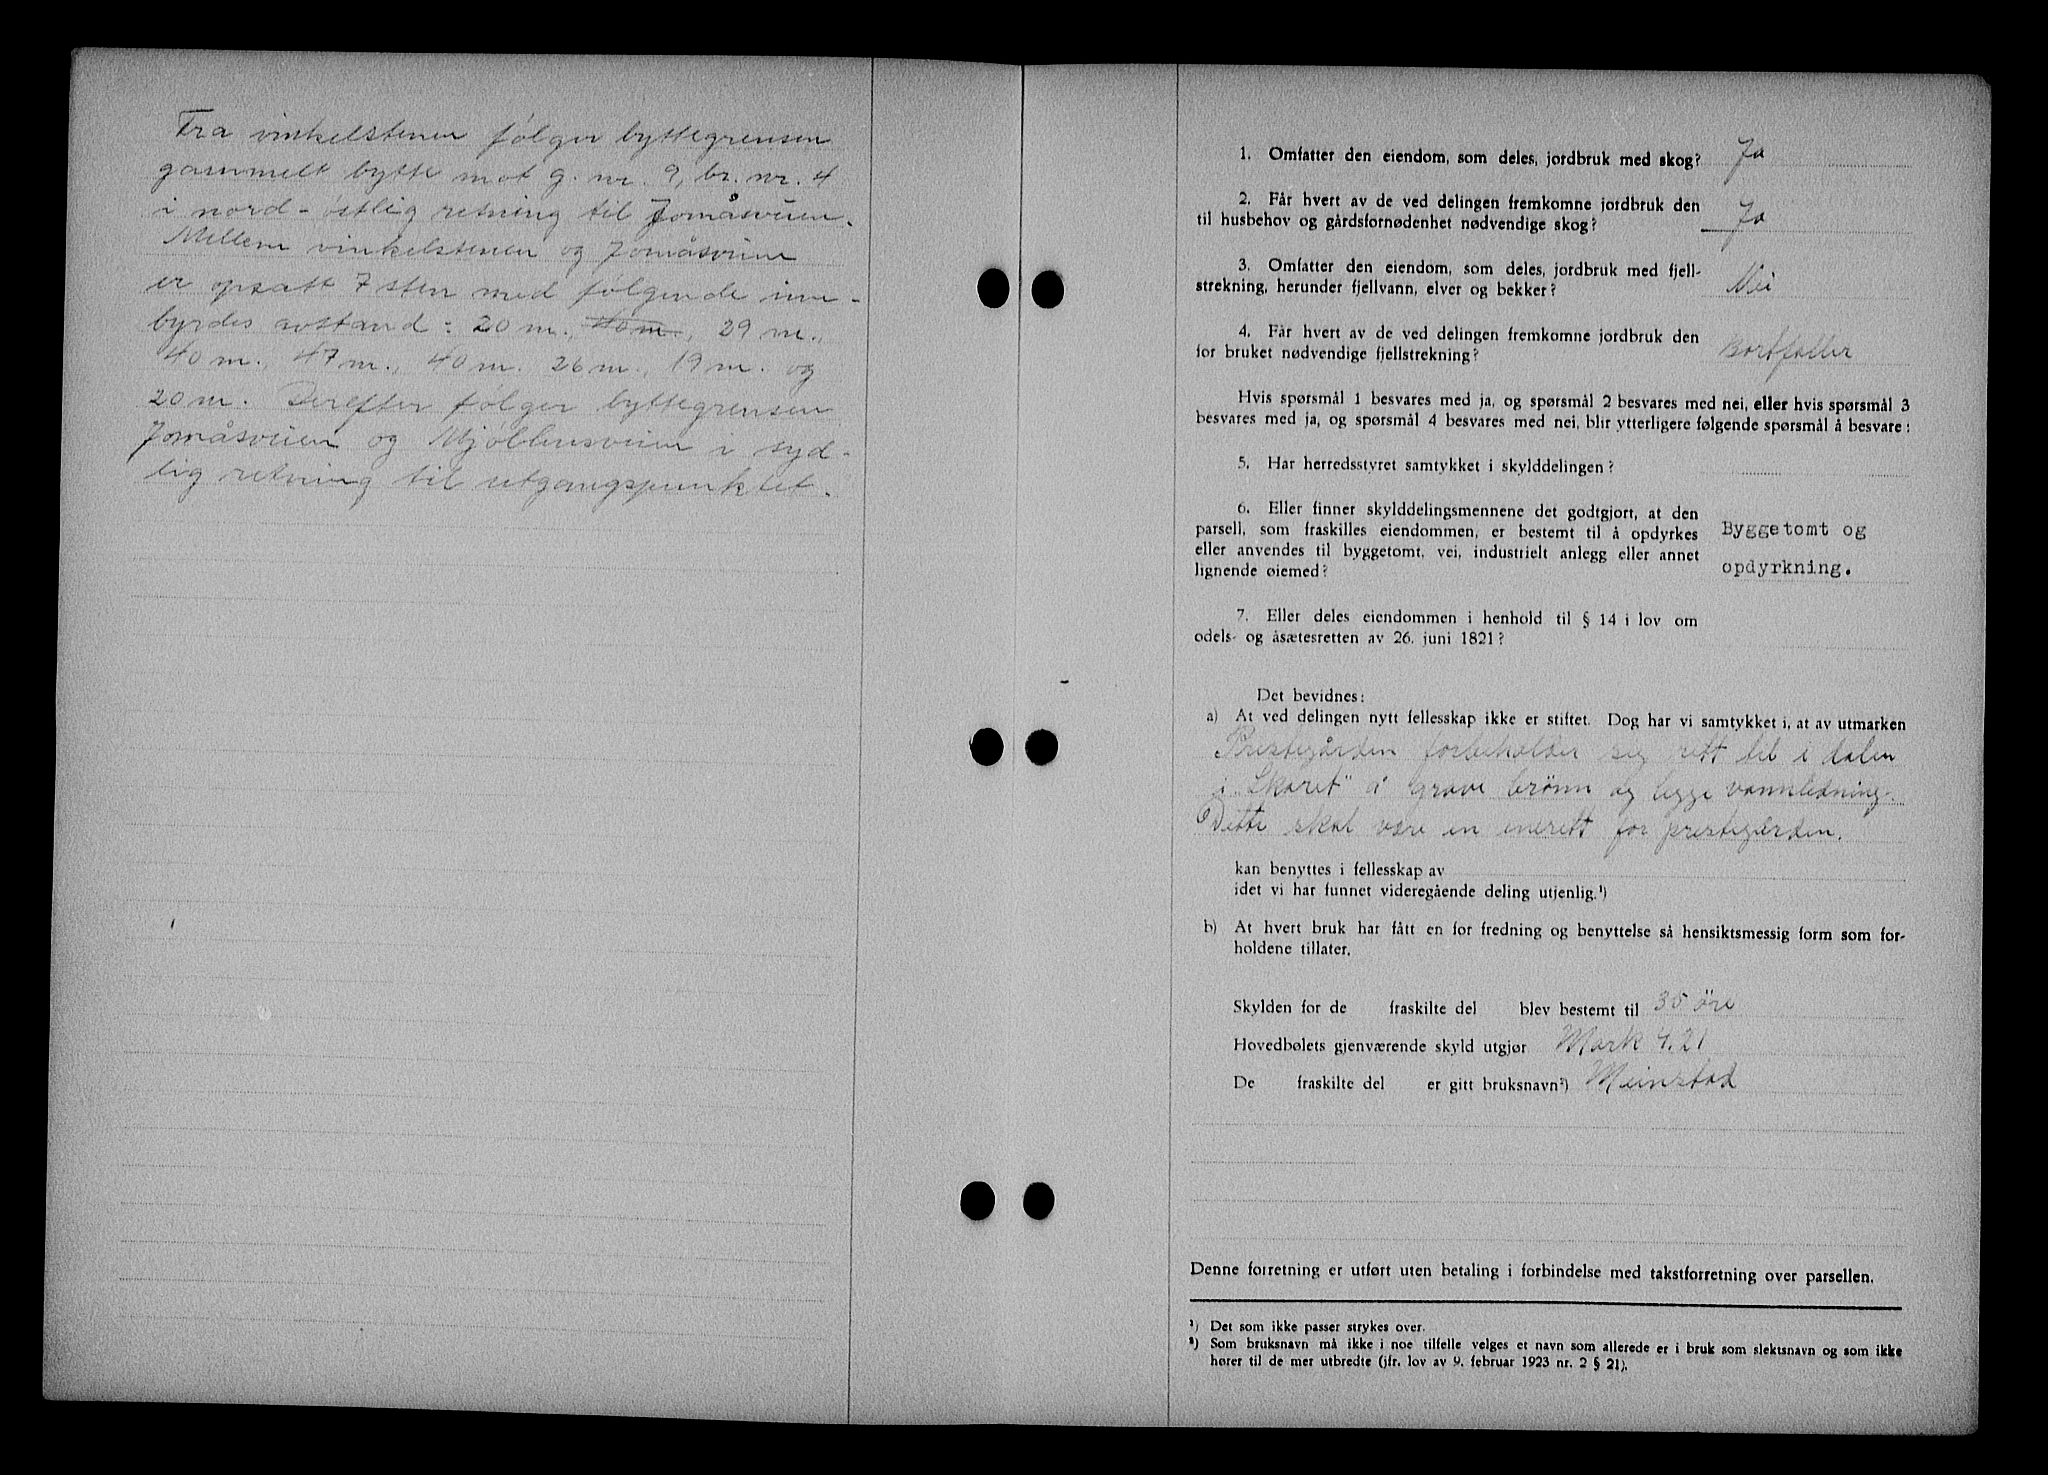 Fra vinkelstenen følger byttegrensen
gammelt bytte mot g. nr. 9, br. nr. 4
i nord-østlig retning til Jomåsveien.
Mellem vinkelstenen og Jomåsveien
er opsatt 7 sten med følgende inn-
byrdes avstand: 20 m., 40 m., 29 m.,
40 m., 47 m., 40 m. 26 m., 19 m. og
20 m. Derefter følger byttegrensen
Jomåsveien og Mjøllensveien i syd-
lig retning til utgangspunktet.
1. Omfatter den eiendom, som deles, jordbruk med skog? Ja
2. Får hvert av de ved delingen fremkomne jordbruk den
til husbehov og gårdsfornødenhet nødvendige skog? Ja
3. Omfatter den eiendom, som deles, jordbruk med fjell-
strekning, herunder fjellvann, elver og bekker? Nei
4. Får hvert av de ved delingen fremkomne jordbruk den
for bruket nødvendige fjellstrekning? Bortfaller
Hvis spørsmål 1 besvares med ja, og spørsmål 2 besvares med nei, eller hvis spørsmål 3
besvares med ja, og spørsmål 4 besvares med nei, blir ytterligere følgende spørsmål å besvare:
5. Har herredsstyret samtykket i skylddelingen?
6. Eller finner skylddelingsmennene det godtgjort, at den
parsell, som fraskilles eiendommen, er bestemt til å opdyrkes
eller anvendes til byggetomt, vei, industrielt anlegg eller annet
lignende øiemed?
Byggetomt og
opdyrkning.
7. Eller deles eiendommen i henhold til § 14 i lov om
odels- og åsætesretten av 26. juni 1821?
Det bevidnes:
a) At ved delingen nytt fellesskap ikke er stiftet. Dog har vi samtykket i, at av utmarken
Prestegården forbeholder seg rett til i dalen
i "Skaret" å grave brønn og legge vannledning.
Dette skal være en enerett for prestegården.
kan benyttes i fellesskap av
idet vi har funnet videregående deling utjenlig.¹)
b) At hvert bruk har fått en for fredning og benyttelse så hensiktsmessig form som for-
holdene tillater.
Skylden for de fraskilte del blev bestemt til 35 øre
Hovedbølets gjenværende skyld utgjør Mark 4.21
De fraskilte del er gitt bruksnavn²) Meinstad
Denne forretning er utført uten betaling i forbindelse med takstforretning over parsellen.
¹) Det som ikke passer strykes over.
²) Som bruksnavn må ikke i noe tilfelle velges et navn som allerede er i bruk som slektsnavn og som ikke
hører til de mer utbredte (jfr. lov av 9. februar 1923 nr. 2 § 21).